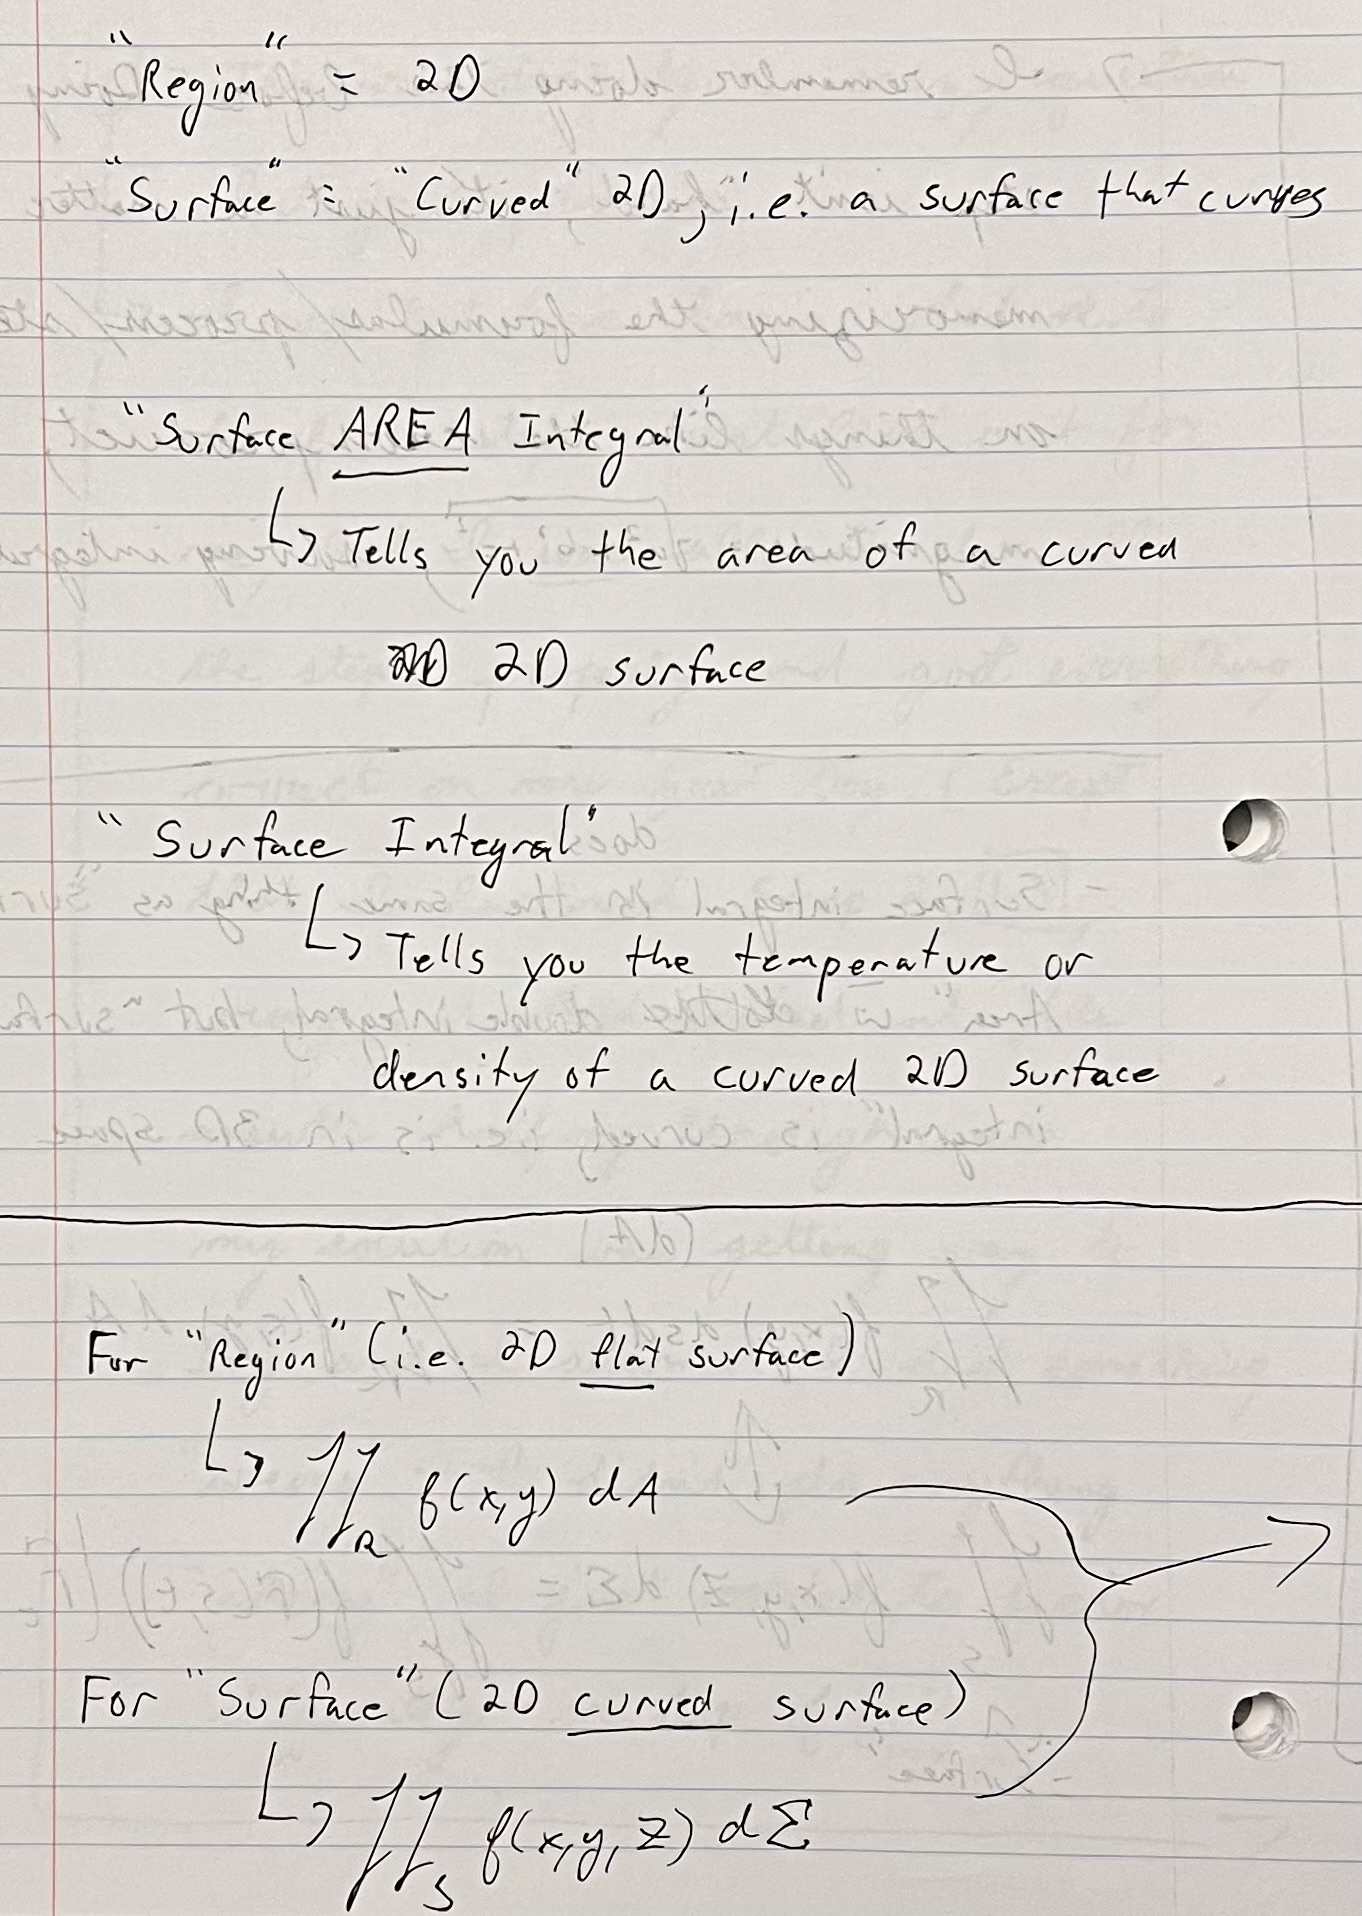 "Region" = 2D
"Surface" = "Curved" 2D, i.e. a surface that curves
"Surface AREA Integral"
↳ Tells you the area of a curved
2D surface
"Surface Integral"
↳ Tells you the temperature or
density of a curved 2D surface
For "Region" (i.e. 2D flat surface)
↳ ∬_R f(x,y) dA
For "Surface" (2D curved surface)
↳ ∬_S f(x,y,z) dΣ